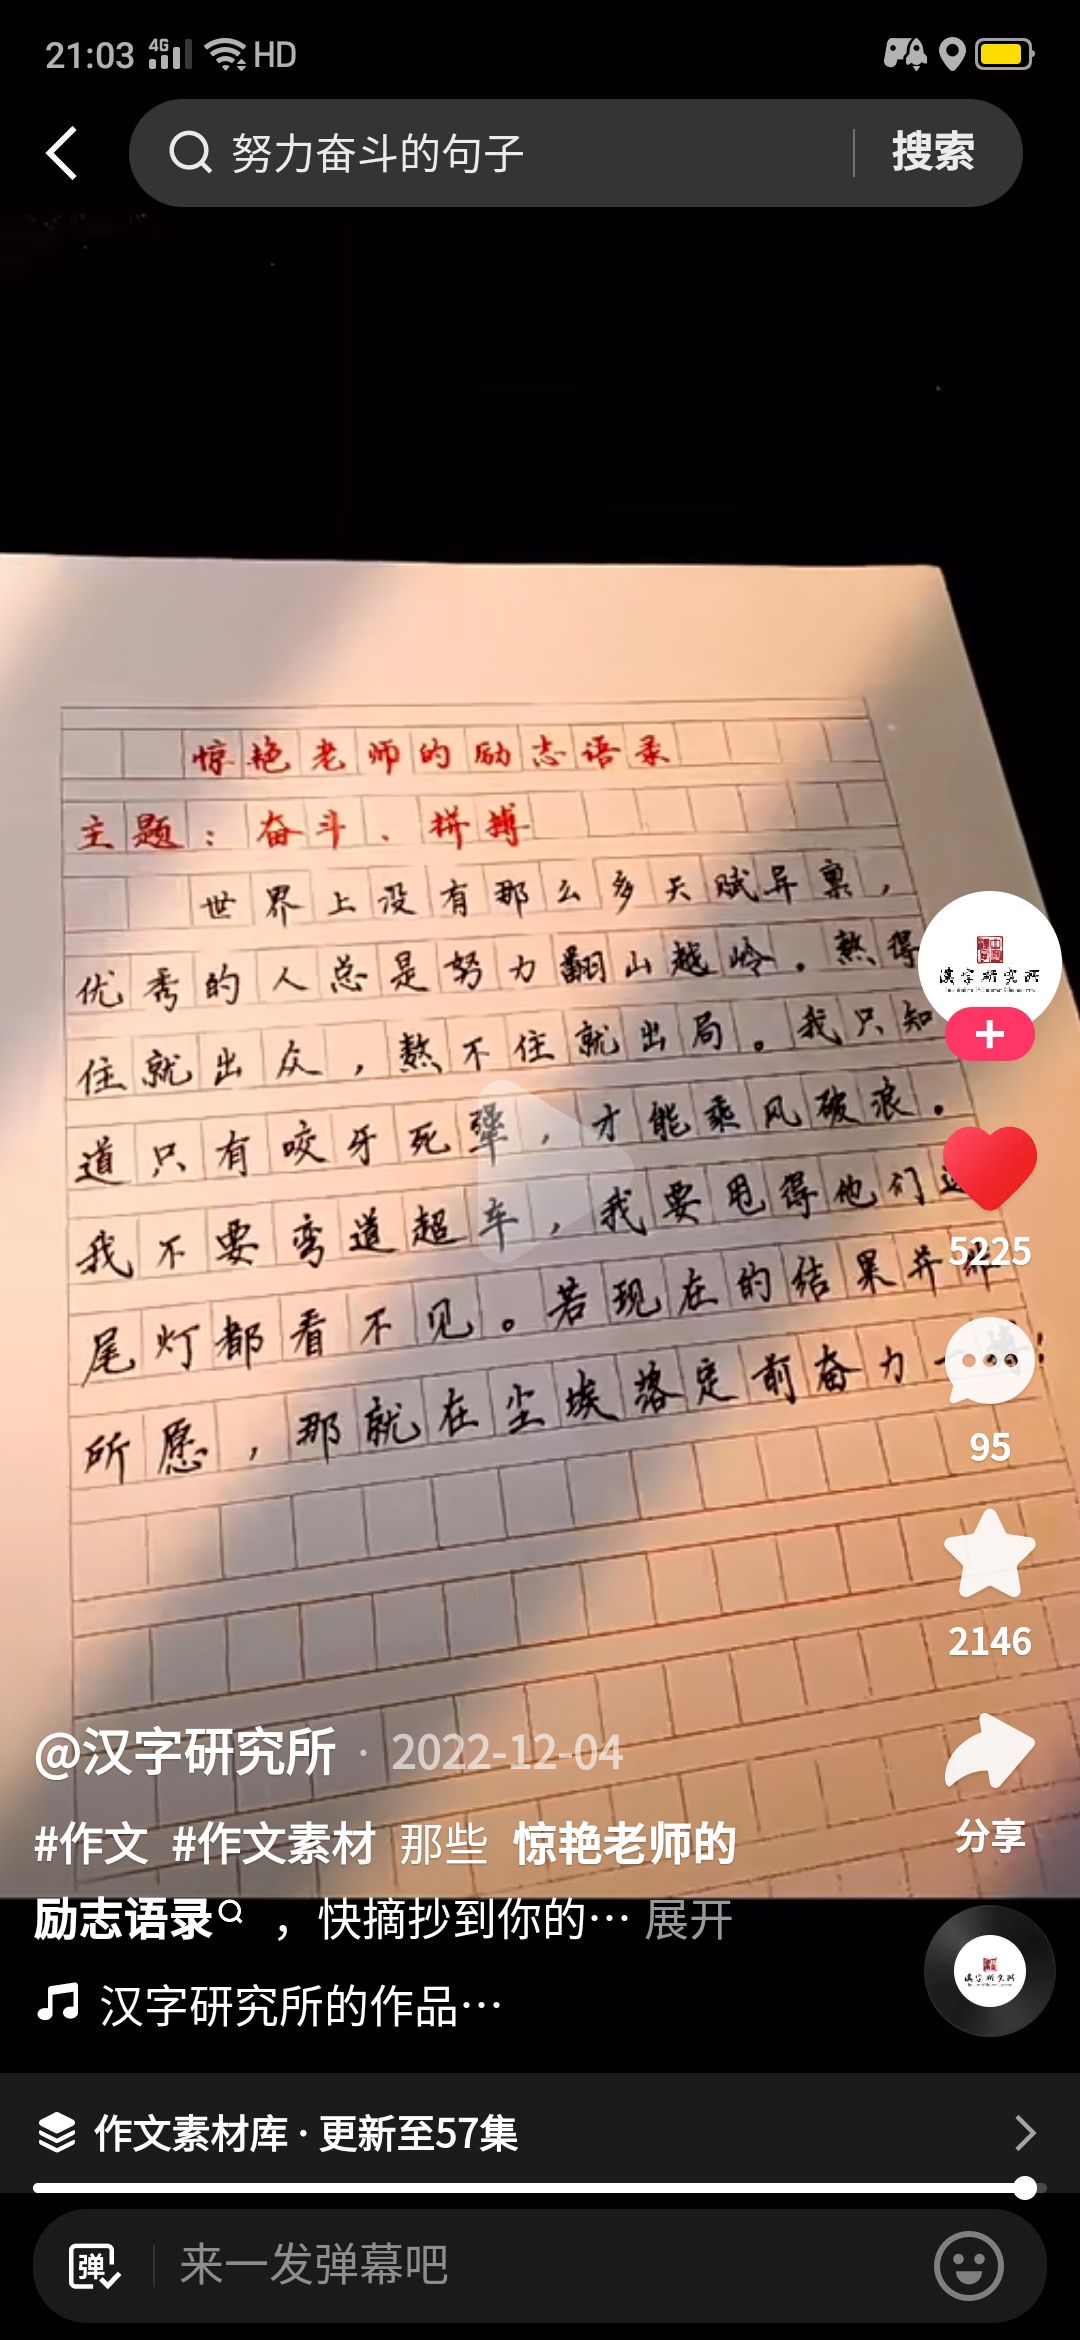 21:03 4G HD
努力奋斗的句子 搜索
惊艳老师的励志语录
主题：奋斗、拼搏
世界上没有那么多天赋异禀，
优秀的人总是努力翻山越岭。熬得
住就出众，熬不住就出局。我只知
道只有咬牙死犟，才能乘风破浪。
我不要弯道超车，我要甩得他们连
尾灯都看不见。若现在的结果并非
所愿，那就在尘埃落定前奋力一搏！
漢字研究所
5225
95
2146
分享
@汉字研究所 · 2022-12-04
#作文 #作文素材 那些 惊艳老师的
励志语录 ，快摘抄到你的… 展开
汉字研究所的作品…
漢字研究所
作文素材库 · 更新至57集
弹 来一发弹幕吧